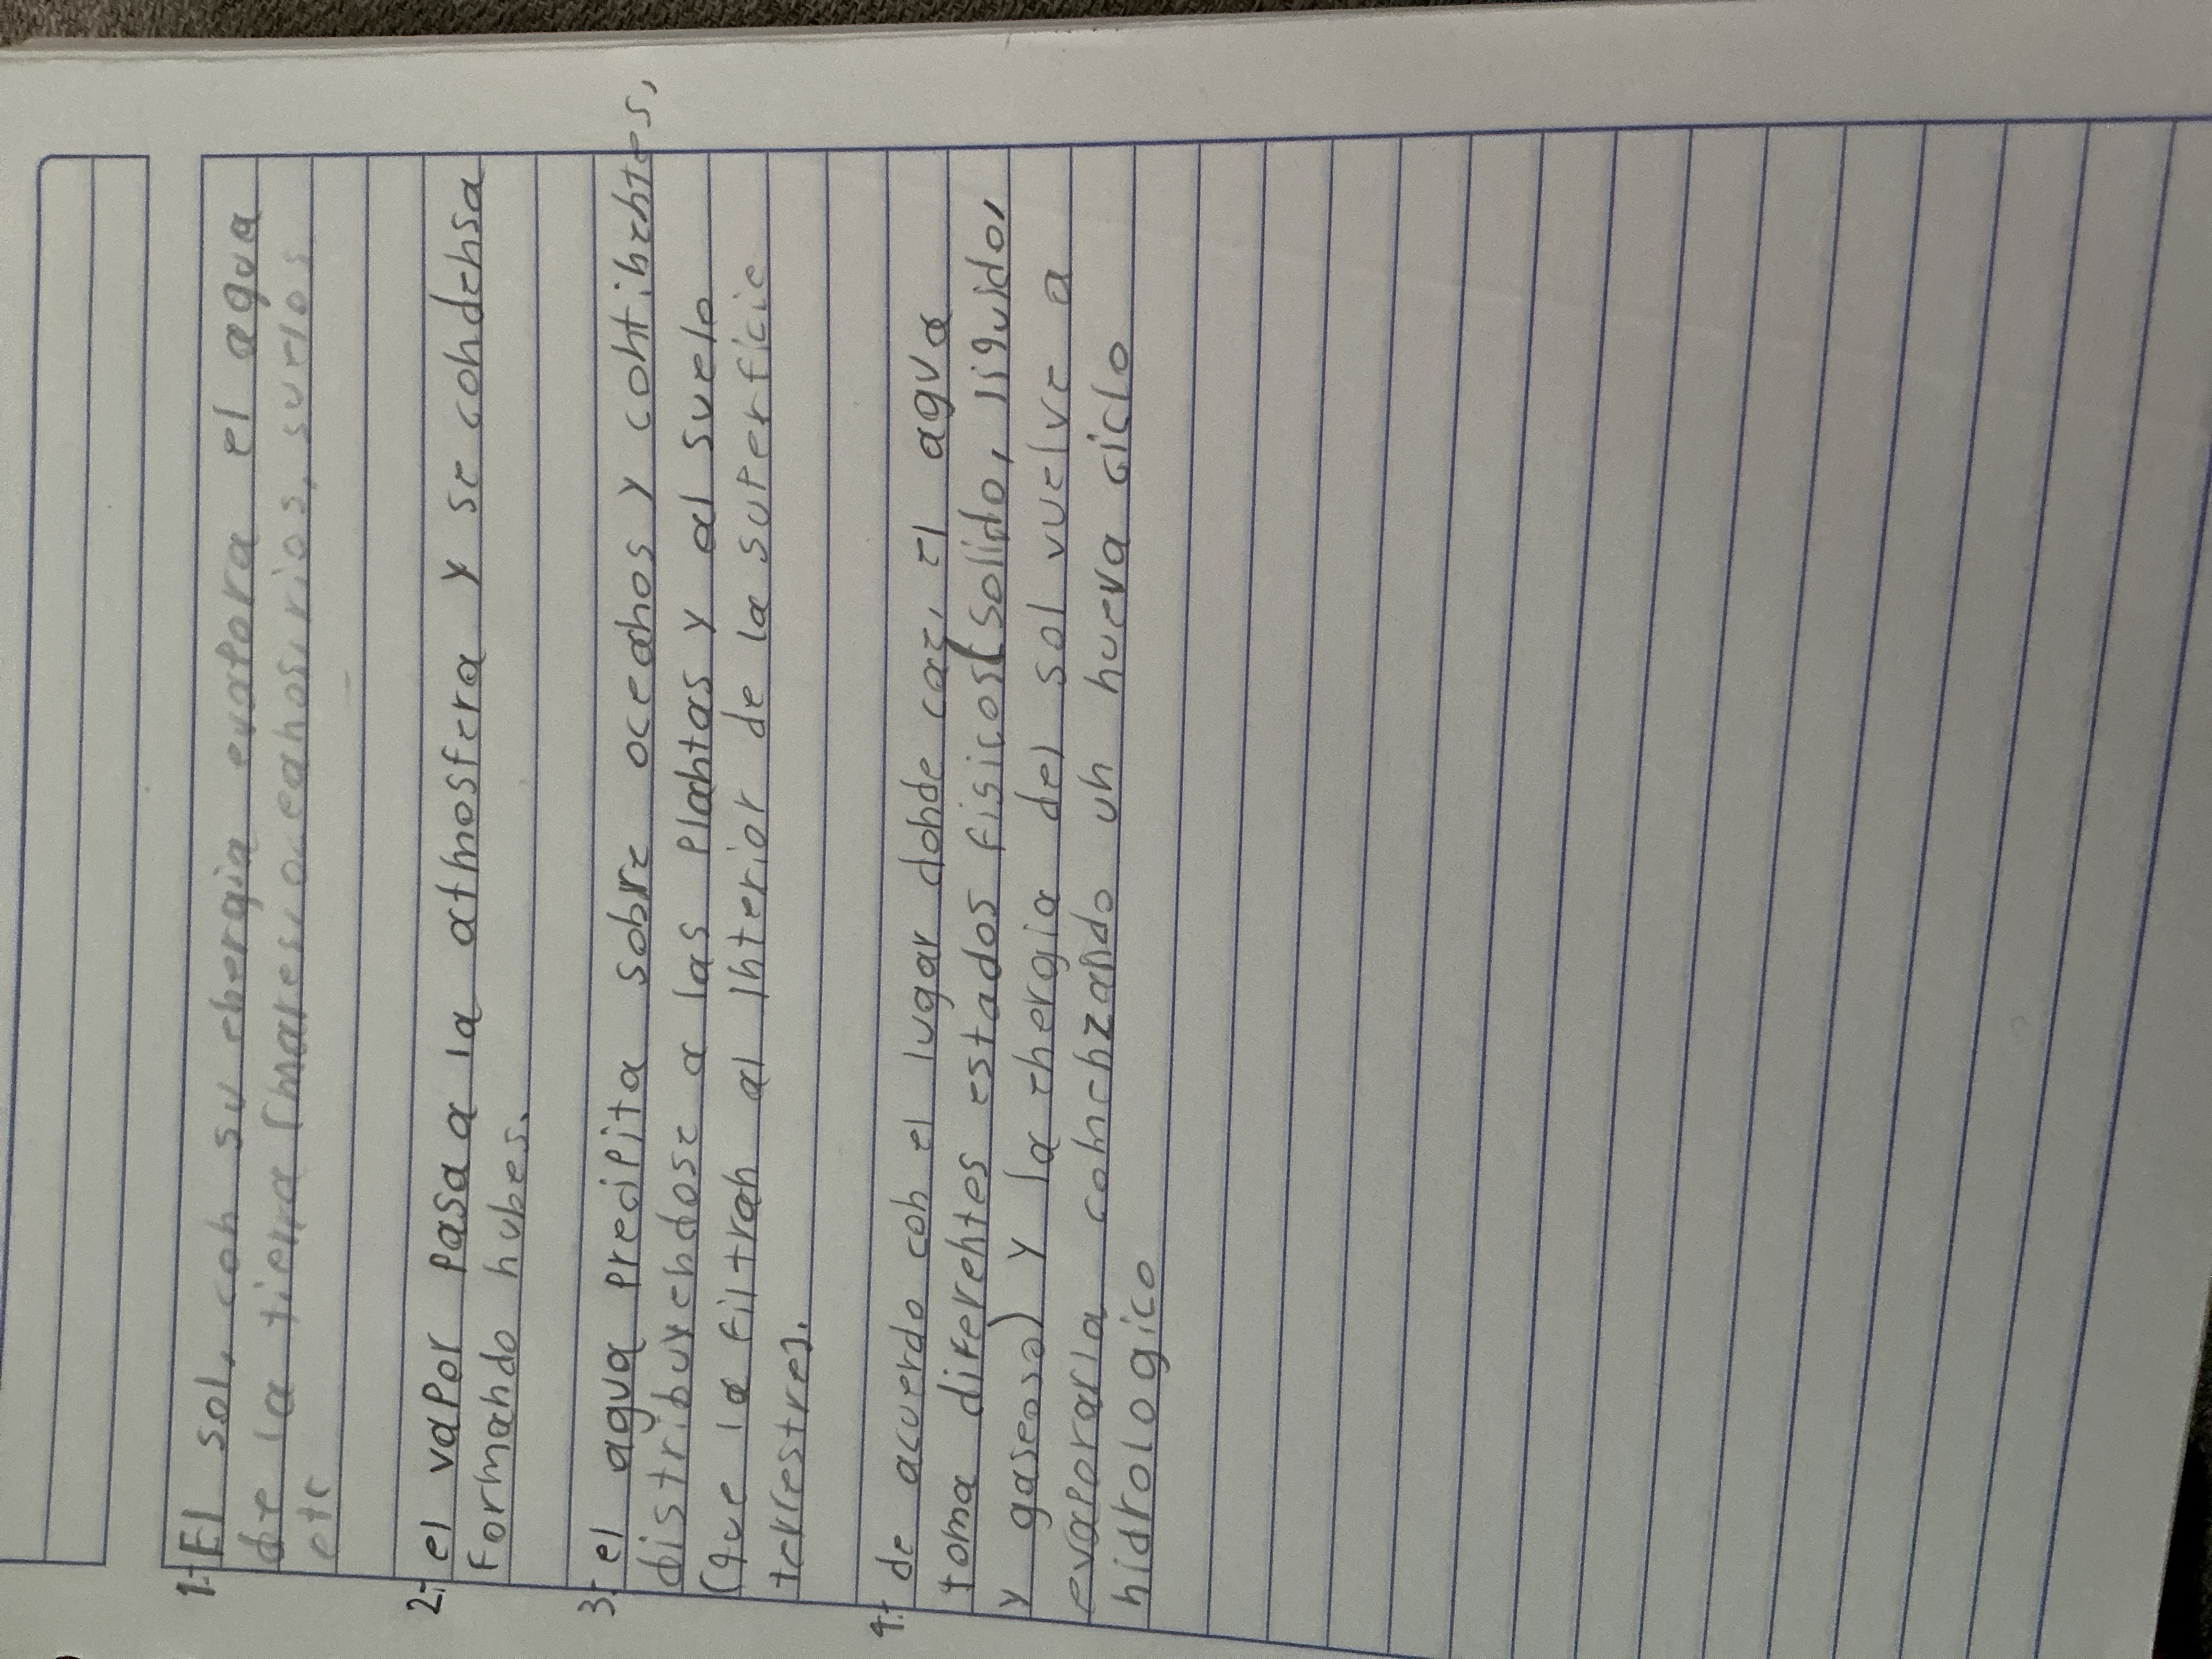 1.- El sol, con su energia evapora el agua
de la tierra (mares, oceanos, rios, suelos
etc
2.- el vapor pasa a la athmosfera y se condensa
formando nubes.
3.- el agua precipita sobre oceanos y contibentes,
distribuyendose a las plantas y al suelo
(que la filtran al interior de la superficie
terrestre).
4.- de acuerdo con el lugar donde cae, el agua
toma diferentes estados fisicos (solido, liquido,
y gaseoso) y la energia del sol vuelve a
evaporarla comenzando un nueva ciclo
hidrologico